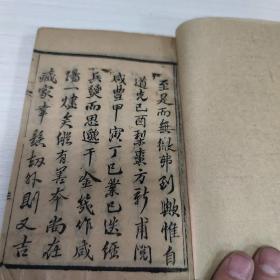 至足而無微弗到歟惟自
道光己酉梨棗方新甫閱
咸豐甲寅丁巳業已迭經
兵燹而思邈千金幾作咸
陽一炬矣縱有善本尚在
藏家幸劫外則又吉